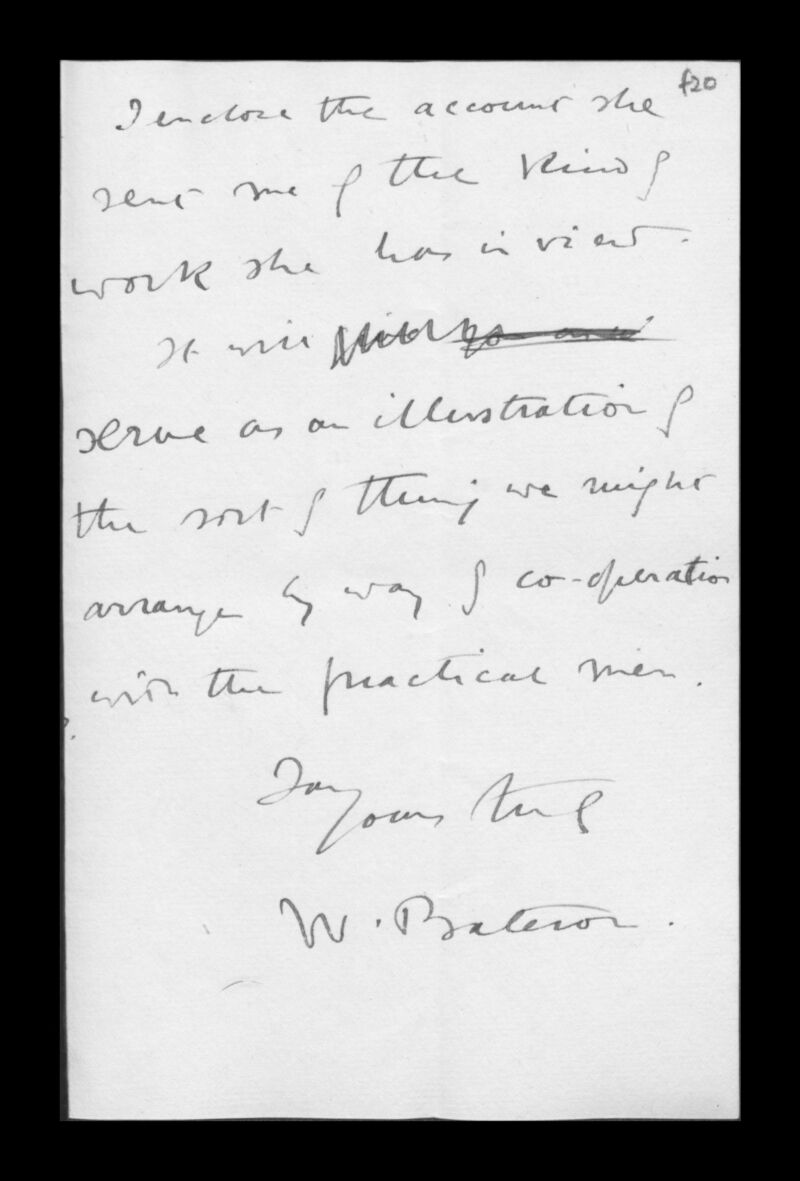 f20
I enclose the account she
sent me of the kind of
work she has in view.
It will
serve as an illustration of
the sort of thing we might
arrange by way of co-operation
with the practical men.
I am
yours truly
W. Bateson.